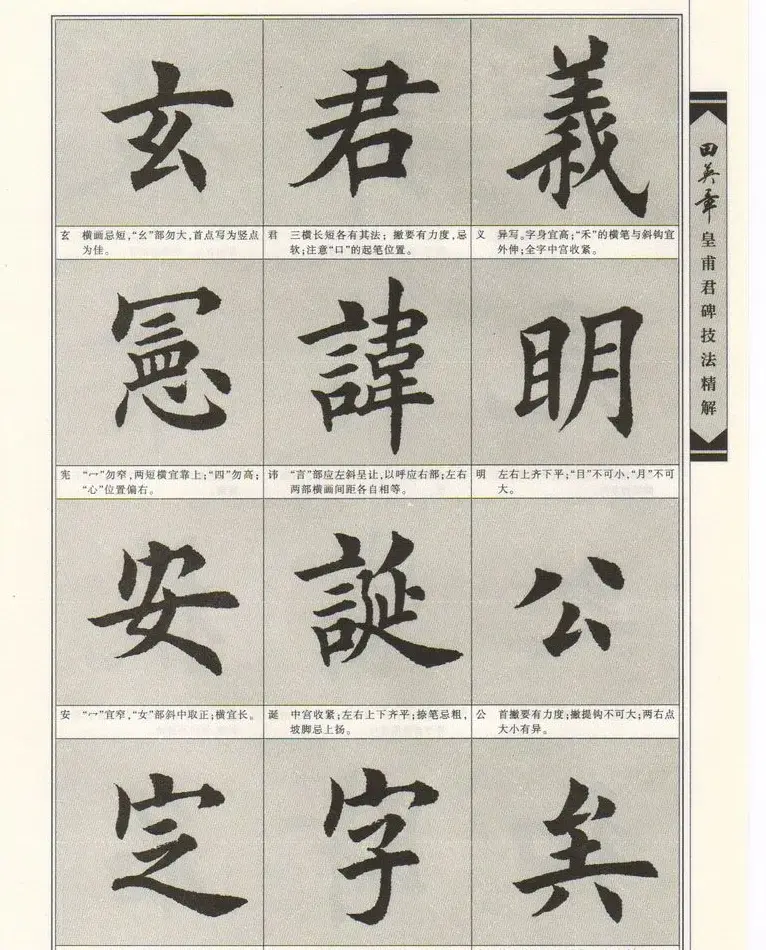 田英章 皇甫君碑技法精解
義
义 异写。字身宜高;“禾”的横笔与斜钩宜
外伸;全字中宫收紧。
明
明 左右上齐下平;“日”不可小,“月”不可
大。
公
公 首撇要有力度;撇提钩不可大;两右点
大小有异。
矣
君
君 三横长短各有其法;撇要有力度,忌
软;注意“口”的起笔位置。
諱
讳 “言”部应左斜呈让,以呼应右部;左右
两部横画间距各自相等。
誕
诞 中宫收紧;左右上下齐平;捺笔忌粗,
坡脚忌上扬。
字
玄
玄 横画忌短,“幺”部勿大,首点写为竖点
为佳。
憲
宪 “冖”勿窄,两短横宜靠上;“四”勿高;
“心”位置偏右。
安
安 “冖”宜窄,“女”部斜中取正;横宜长。
定